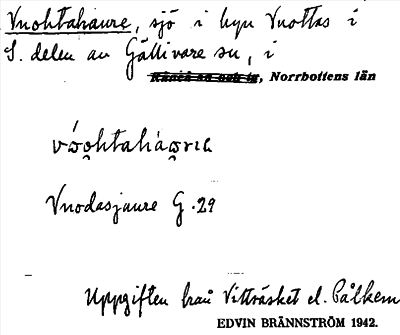 Vuohtahaure, sjö i byn Vuottas i
S. delen av Gällivare sn, i
Råneå sn och tg, Norrbottens län
Vuodasjaure G. 29
Uppgiften från Vitträsket el. Pålkem
EDVIN BRÄNNSTRÖM 1942.